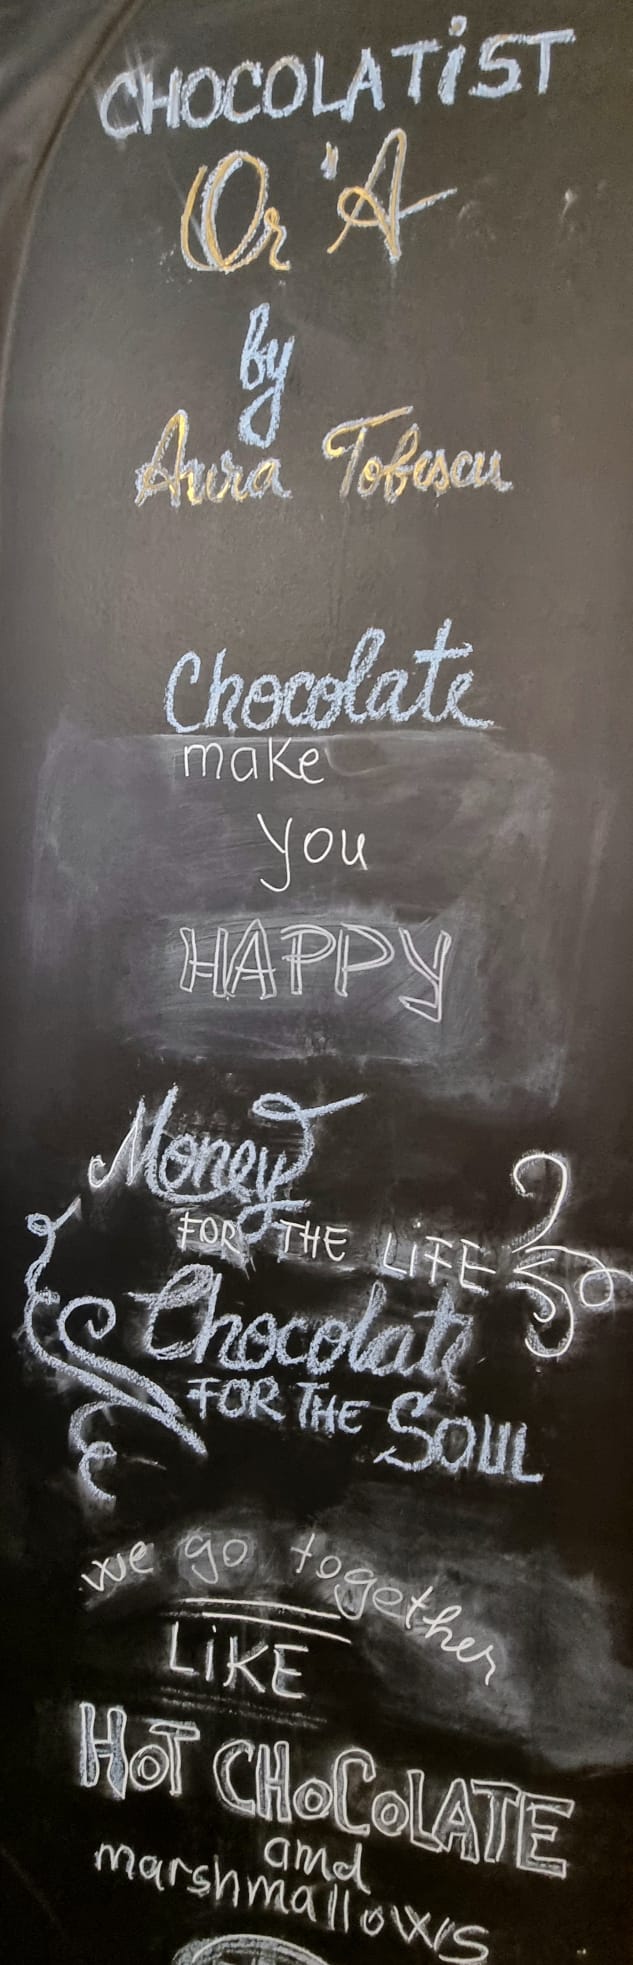 CHOCOLATIST
Or 'A
by
Aura Tobescu
Chocolate
make
you
HAPPY
Money
FOR THE LIFE
Chocolate
FOR THE SOUL
we go together
LIKE
HOT CHOCOLATE
and
marshmallows